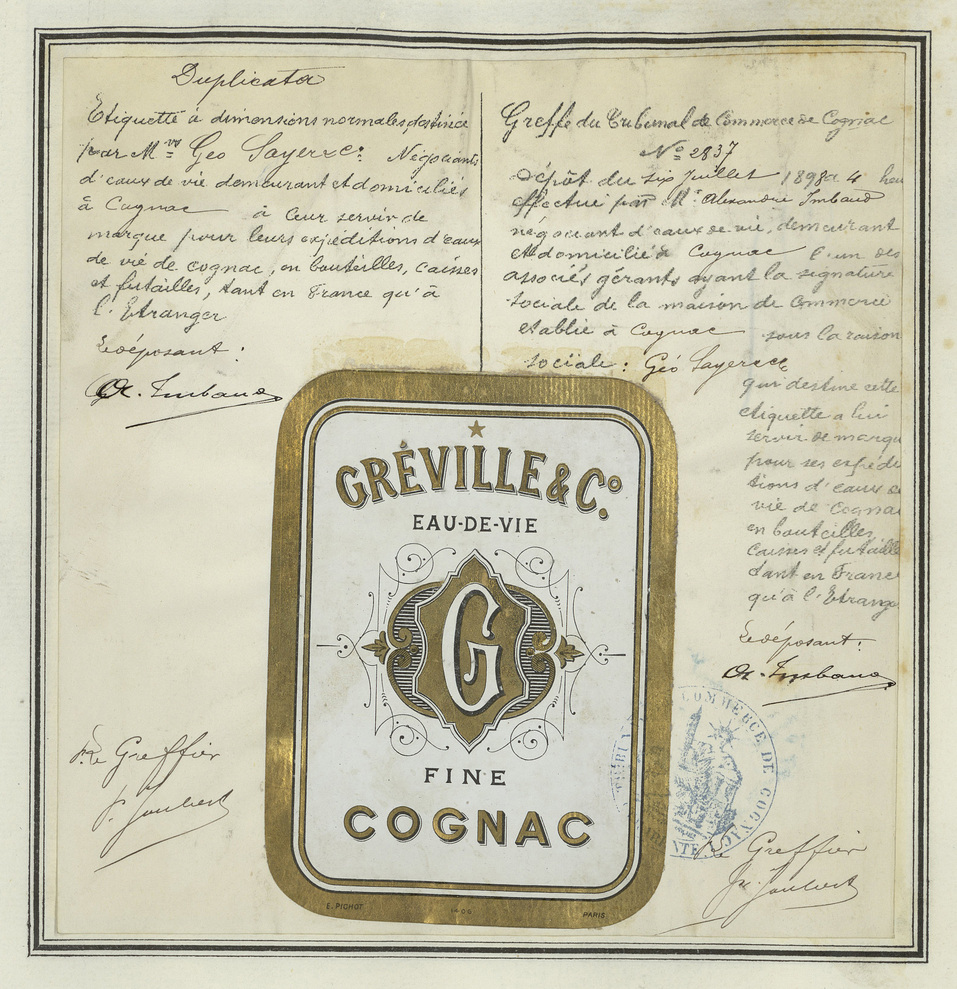 Duplicata
Etiquette à dimensions normales, destinée
par Mrs Geo Sayer & Cie Négociants
d'eaux de vie demeurant et domiciliés
à Cognac à leur servir de
marque pour leurs expéditions d'eaux
de vie de cognac, en bouteilles, caisses
et futailles, tant en France qu'à
l'Etranger
Le déposant :
Ax. Imbaud
Le Greffier
Greffe du Tribunal de Commerce de Cognac
No 2837
Dépôt du six Juillet 1898 à 4 heu
effectué par Mr Alexandre Imbaud
négociant d'eaux de vie, demeurant
et domicilié à Cognac l'un des
associés gérants ayant la signature
sociale de la maison de Commerce
etablie à Cognac sous la raison
sociale : Géo Sayer & Cie
qui destine cette
etiquette a lui
servir de marqu
pour ses expédi
tions d'eaux de
vie de Cognac
en bouteilles,
caisses et futaille
tant en France
qu'à l'Etrang
Le déposant :
Ax. Imbaud
Le Greffier
GRÉVILLE & Co.
EAU-DE-VIE
G
FINE
COGNAC
E. PICHOT
PARIS
COMMERCE DE COGNAC